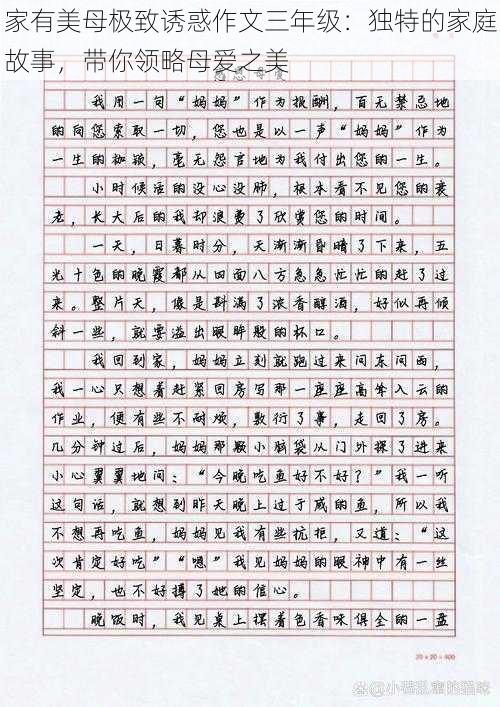 家有美母极致诱惑作文三年级：独特的家庭
故事，带你领略母爱之美
感恩母爱
我用一句“妈妈”作为报酬，百无禁忌地
的向您索取一切，您也是以一声“妈妈”作为
一生的枷锁，毫无怨言地为我付出您的一生。
小时候活的没心没肺，根本看不见您的衰
老，长大后的我却浪费了欣赏您的时间。
一天，日暮时分，天渐渐昏暗了下来，五
光十色的晚霞都从四面八方急急忙忙的赶了过
来。整片天，像是斟满了浓香醇酒，好似再倾
斜一些，就要溢出眼眸般的杯口。
我回到家，妈妈立刻就跑过来问东问西，
我一心只想着赶紧回房写那一座座高耸入云的
作业，便有些不耐烦，敷衍了事，走回了房。
几分钟过后，妈妈那颗小脑袋从门外探了进来
小心翼翼地问：“今晚吃鱼好不好？”我一听
这句话，就想到昨天晚上过于咸的鱼，所以我
不想再吃鱼，妈妈见我有些抗拒，又道：“这
次肯定好吃”“嗯”我见妈妈的眼神中有一丝
坚定，也不好搏了她的信心。
晚饭时，我见桌上摆着色香味俱全的一盘
20×20=400